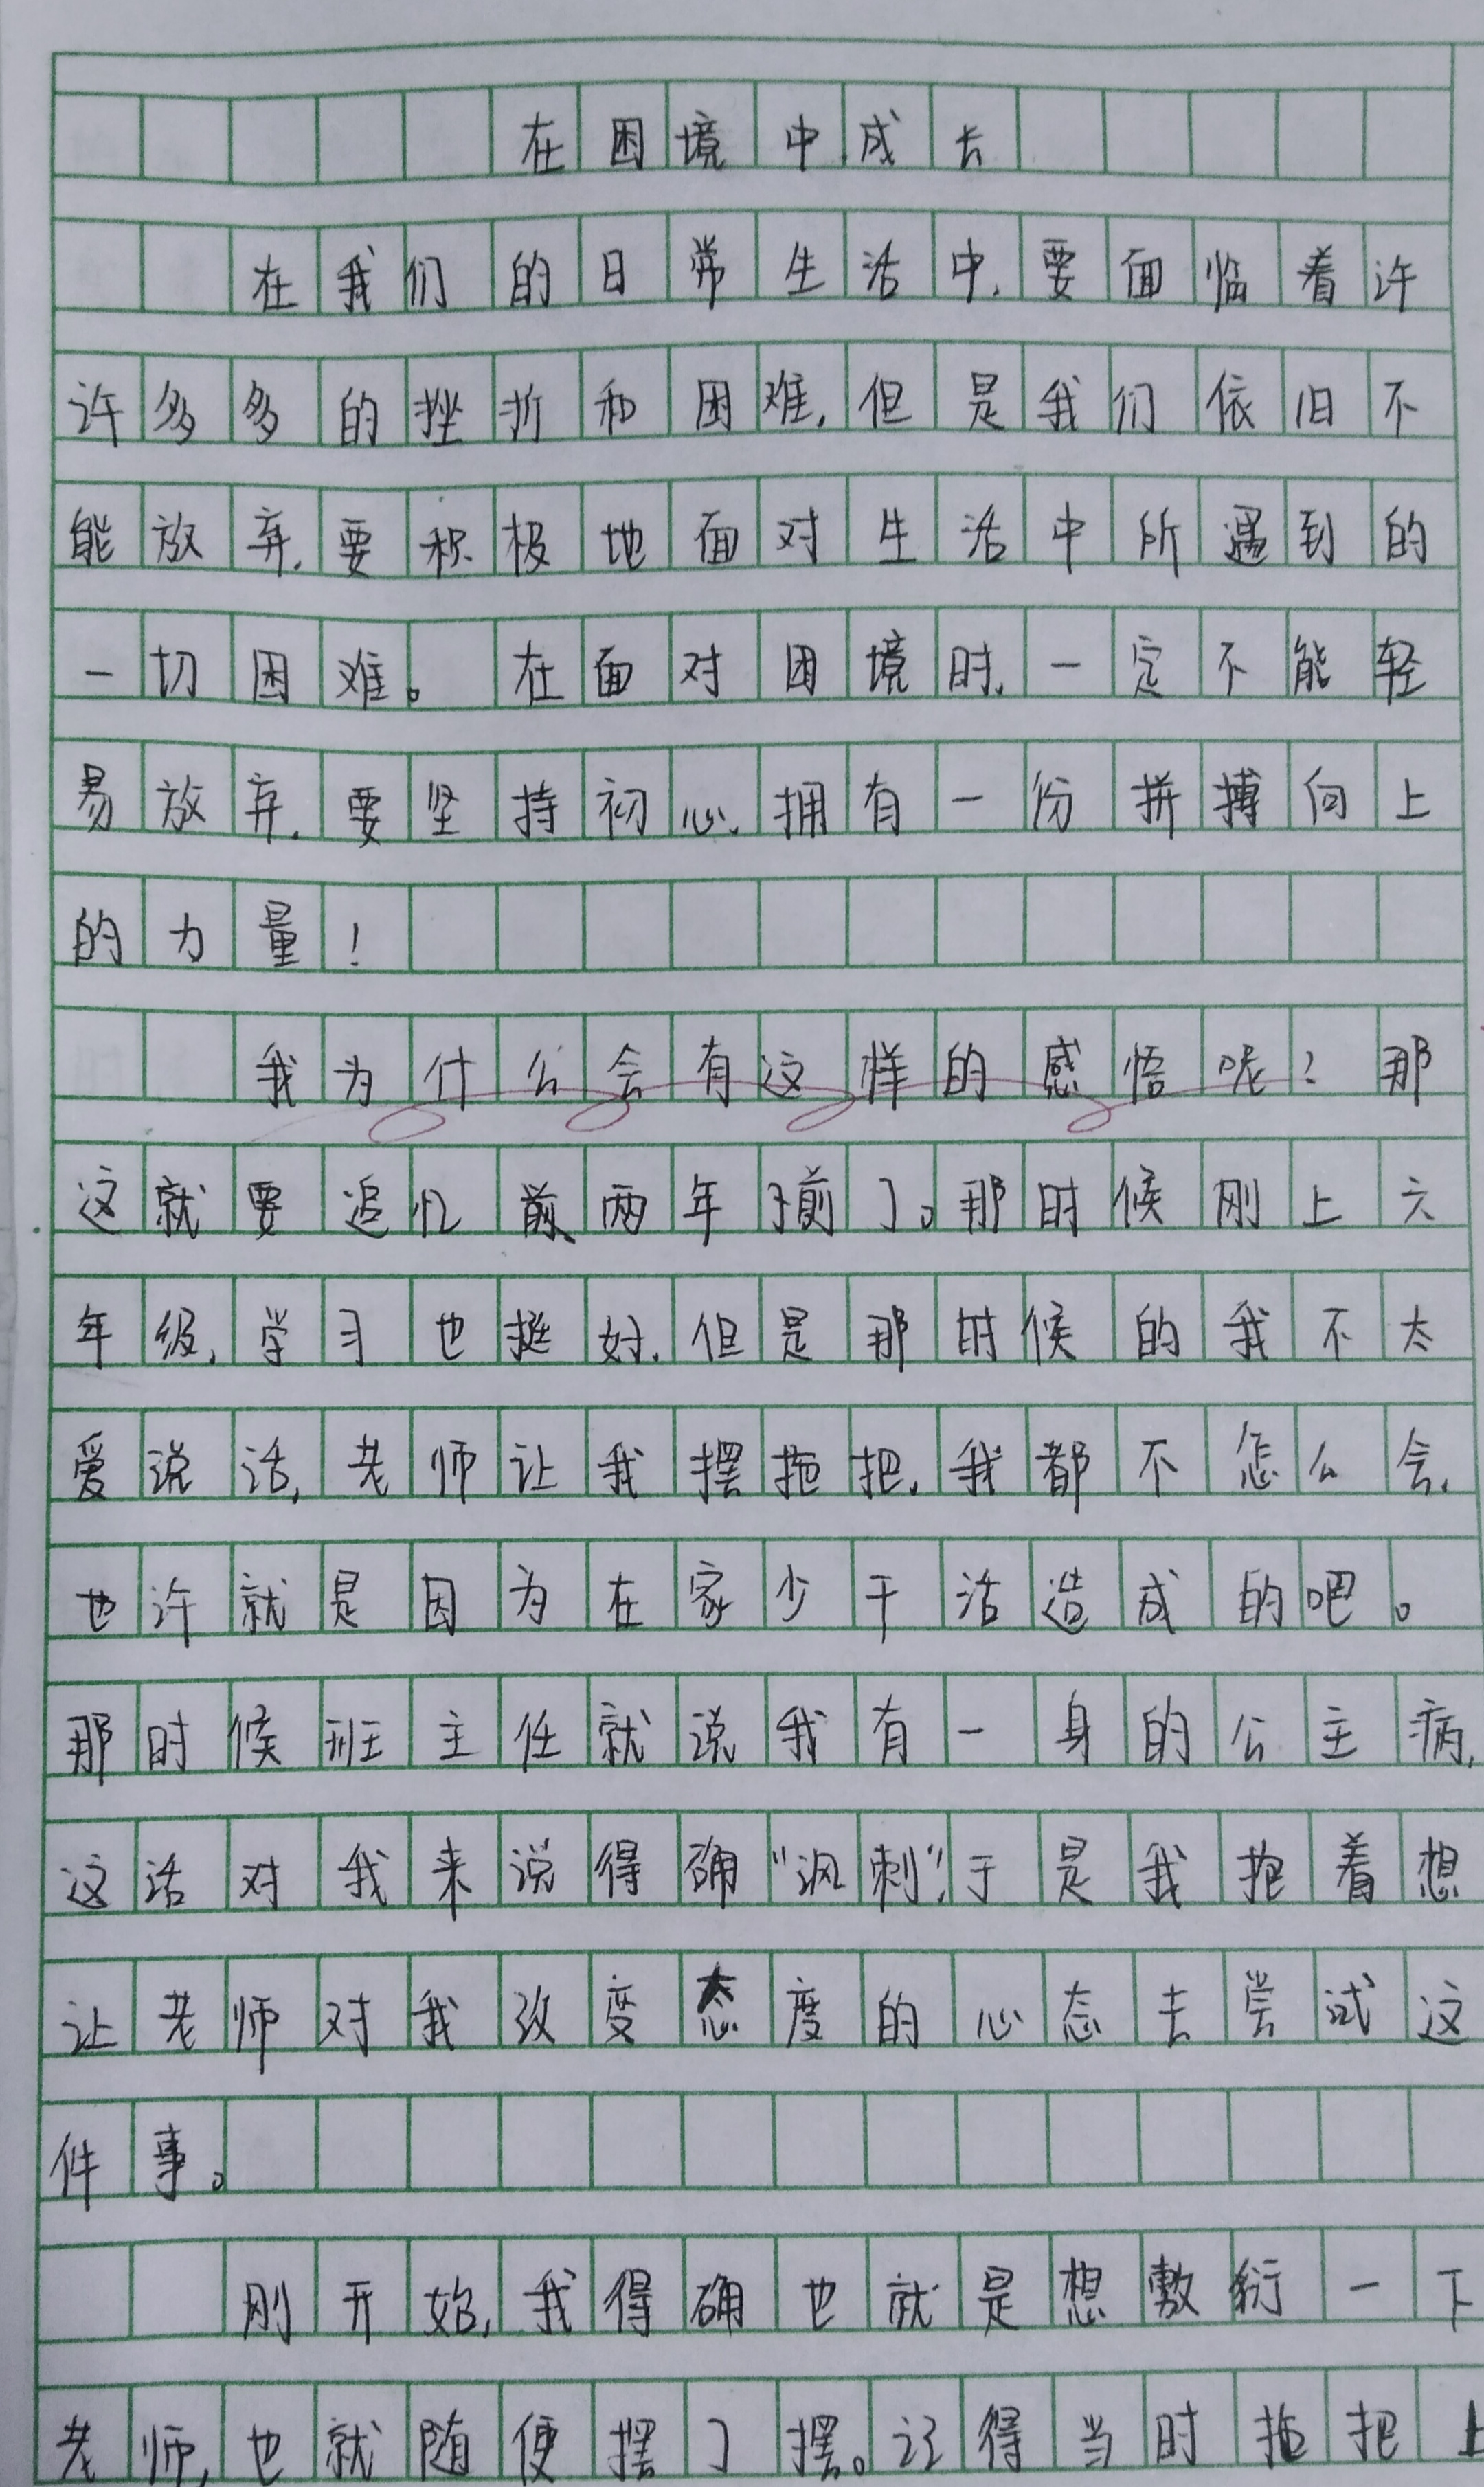 在困境中成长
在我们的日常生活中,要面临着许
许多多的挫折和困难,但是我们依旧不
能放弃,要积极地面对生活中所遇到的
一切困难。在面对困境时,一定不能轻
易放弃,要坚持初心,拥有一份拼搏向上
的力量!
我为什么会有这样的感悟呢?那
这就要追忆前两年前了。那时候刚上六
年级,学习也挺好,但是那时候的我不太
爱说话,老师让我摆拖把,我都不怎么会,
也许就是因为在家少干活造成的吧。
那时候班主任就说我有一身的公主病,
这话对我来说得确“讽刺”,于是我抱着想
让老师对我改变态度的心态去尝试这
件事。
刚开始,我得确也就是想敷衍一下
老师,也就随便摆了摆。记得当时拖把上